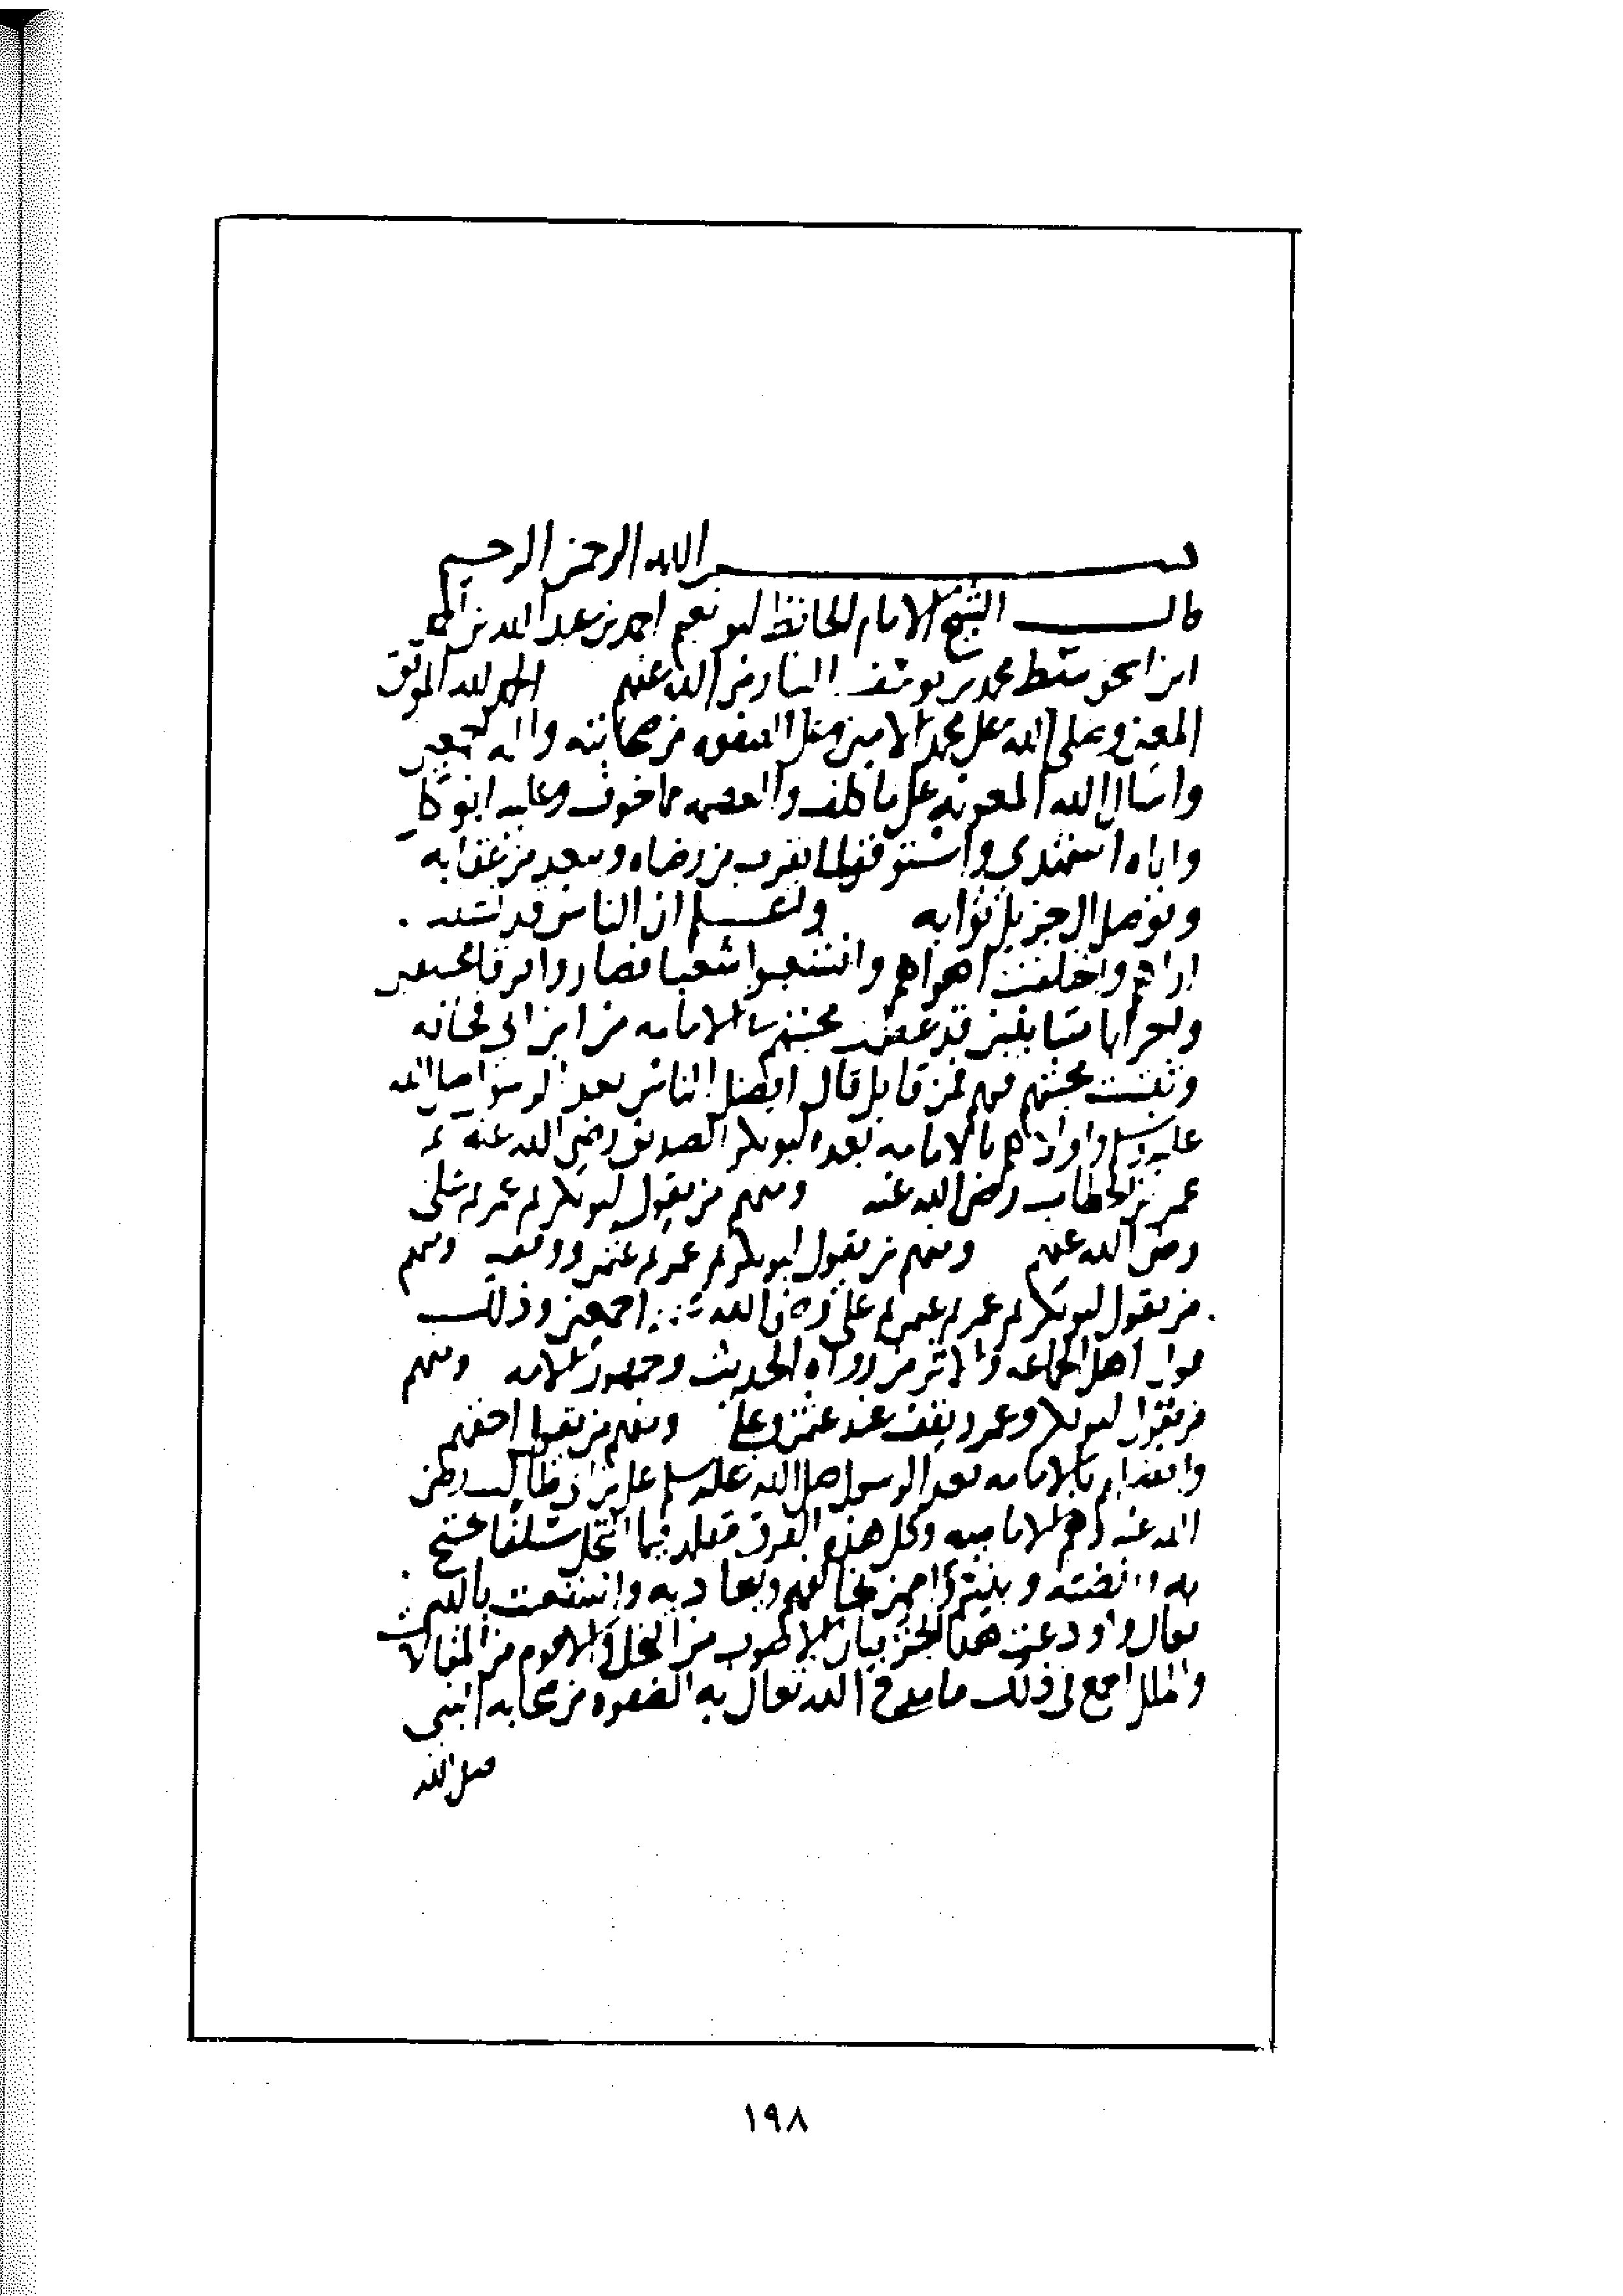 بسم الله الرحمن الرحيم
قال الشيخ الامام الحافظ ابو نعيم احمد بن عبد الله بن احمد
ابن اسحق سبط محمد بن يوسف البنا رضي الله عنهم الحمد لله الموفق
المعين وصلى الله على محمد الامين وعلى الصفوه من صحابته واله اجمعين
واسال الله المعونه على ما كلف والعصمه مما خوف وعليه اتوكل
واياه استهدي واستوفقه لما يقرب من رضاه ويبعد من عذابه
ويوصل الى جزيل ثوابه ولتعلم ان الناس قد تشتت
اراهم واختلفت اهواهم وانشعبوا شعبا فصاروا فرقا مجتمعين
واحزابا متباينين قد محنتهم بالامامه من
محنتهم فمنهم من قايل قال افضل الناس بعد الرسول صلى الله
عليه وسلم واولاهم بالامامه بعده ابو بكر الصديق رضي الله عنه ثم
عمر بن الخطاب رضي الله عنه ومنهم من يقول ابو بكر ثم عمر ثم علي
رضي الله عنهم ومنهم من يقول ابو بكر ثم عمر ثم عثمن ووقف ومنهم
من يقول ابو بكر ثم عمر ثم عثمن ثم علي رضي الله عنهم اجمعين وذلك
قول اهل الجماعه والاثر من رواه الحديث وجمهور الامه ومنهم
من يقول ابو بكر وعمر ويقف عند عثمن وعلي ومنهم من يقول احقهم
بالامامه بعد الرسول صلى الله عليه وسلم علي بن ابي طالب رضي
الله عنه وهم الاماميه وكل هذه الفرق مقلد فيما انتحل سلفا محتج
به ويعاديه واستعنت بالله
تعال واودعت هذا الجز بيان الاصوب من النحل والاقوم من المقالات
والملل اجمع في ذلك ما مدح الله تعال به الصفوه من صحابه النبي
صلى الله
١٩٨